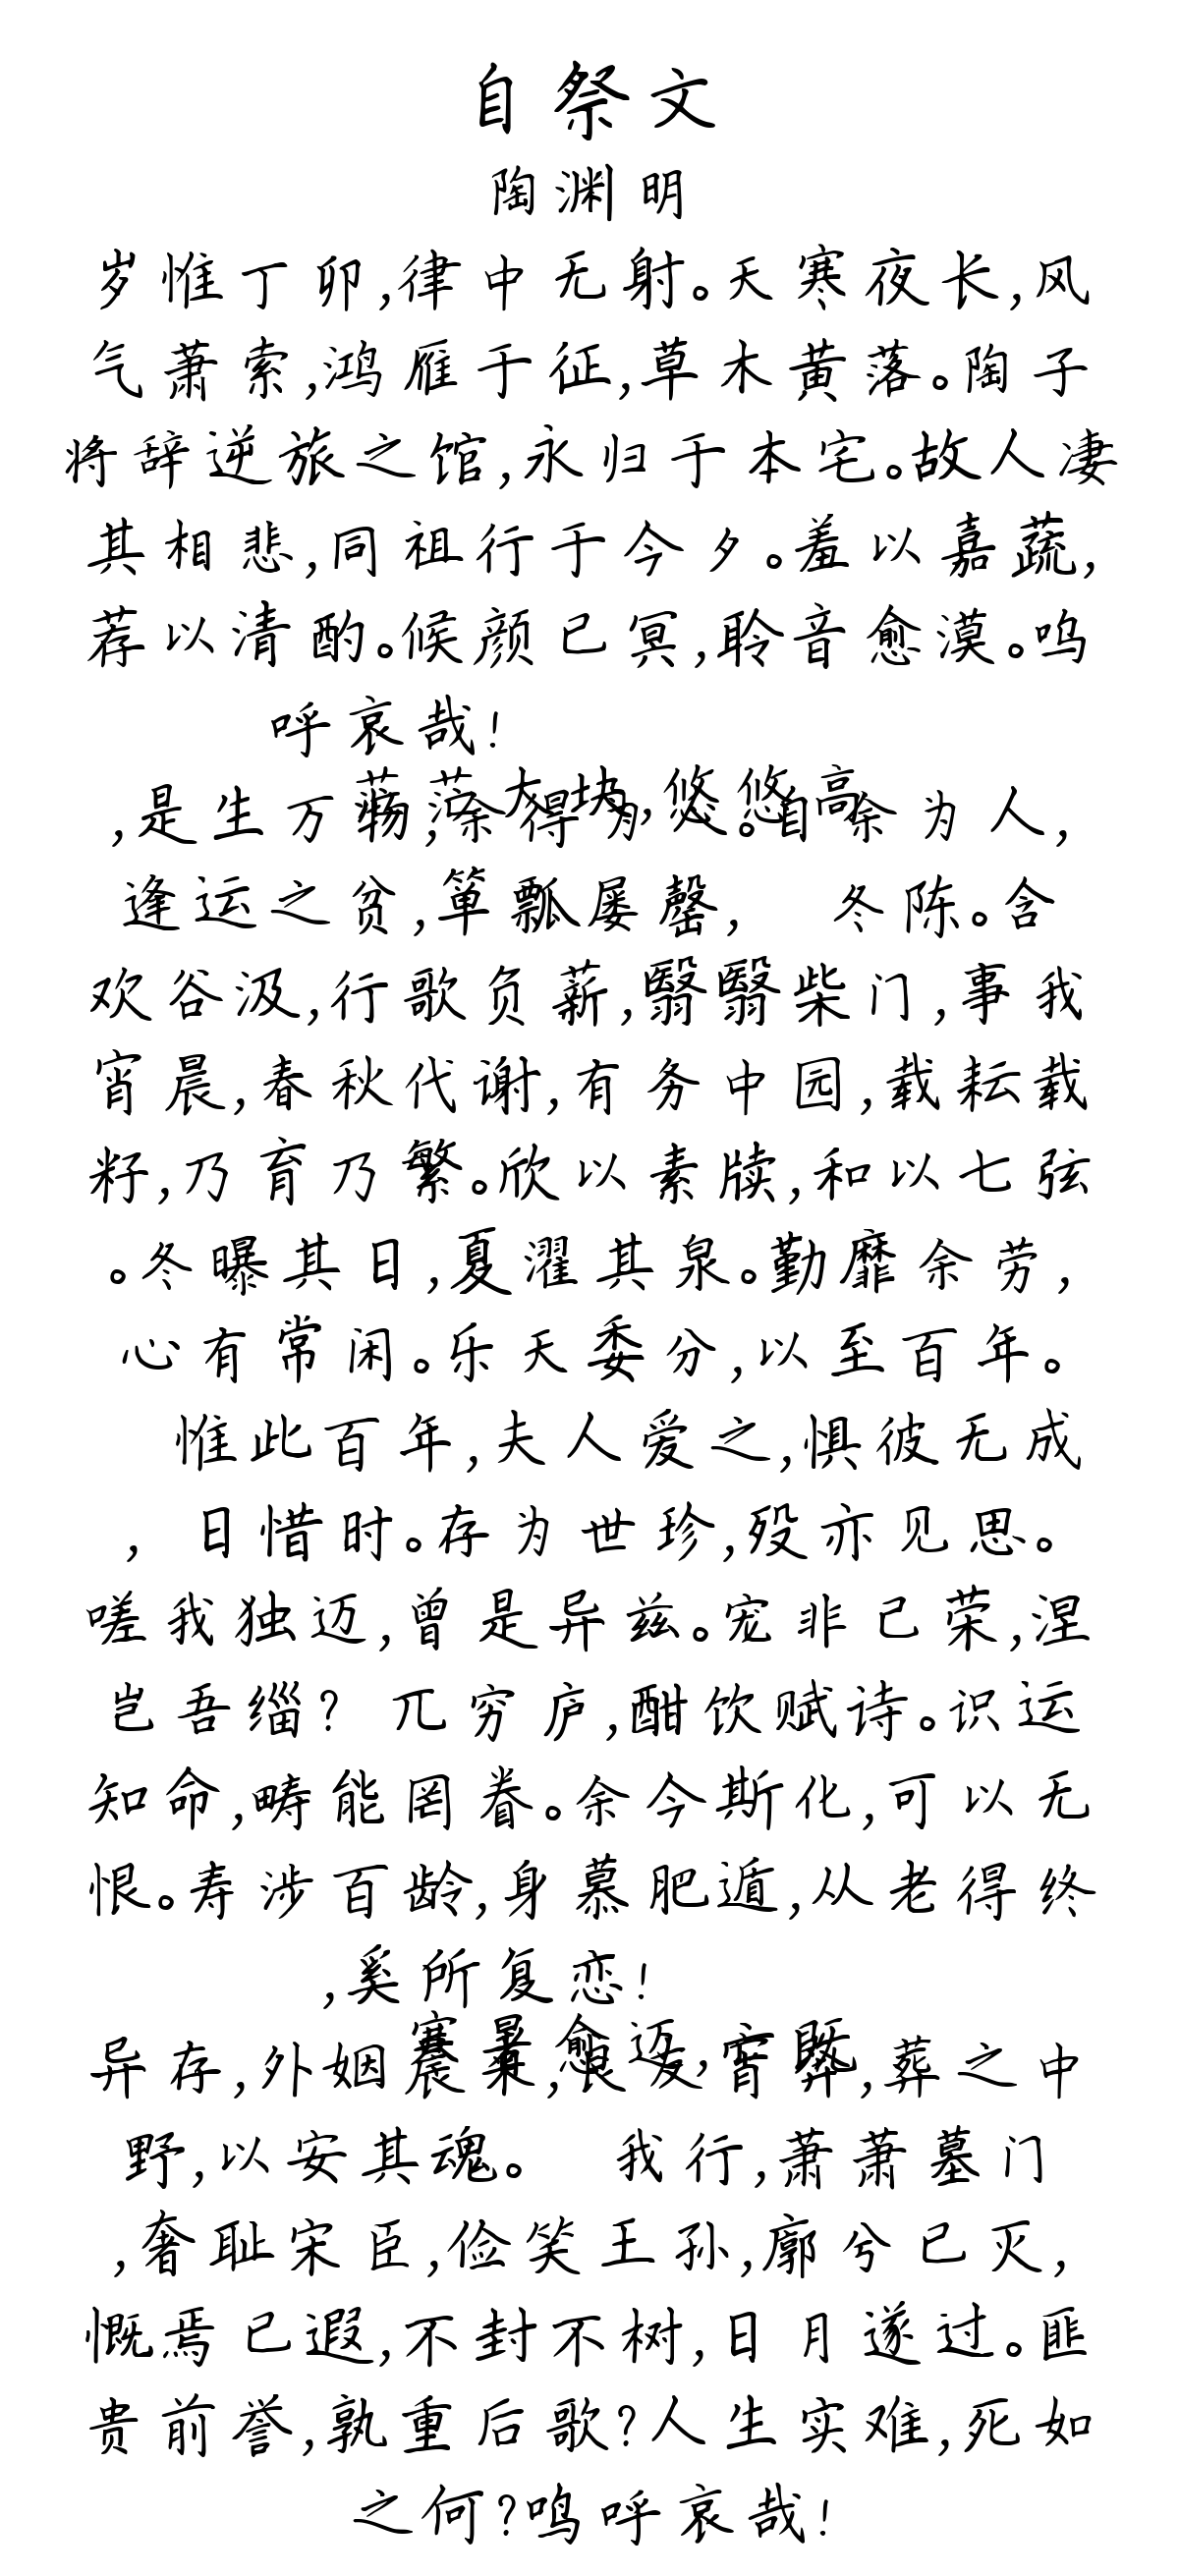 自祭文
陶渊明
岁惟丁卯,律中无射。天寒夜长,风
气萧索,鸿雁于征,草木黄落。陶子
将辞逆旅之馆,永归于本宅。故人凄
其相悲,同祖行于今夕。羞以嘉蔬,
荐以清酌。候颜已冥,聆音愈漠。呜
呼哀哉!
茫茫大块,悠悠高
,是生万物,余得为人。自余为人,
逢运之贫,箪瓢屡罄, 冬陈。含
欢谷汲,行歌负薪,翳翳柴门,事我
宵晨,春秋代谢,有务中园,载耘载
籽,乃育乃繁。欣以素牍,和以七弦
。冬曝其日,夏濯其泉。勤靡余劳,
心有常闲。乐天委分,以至百年。
惟此百年,夫人爱之,惧彼无成
, 日惜时。存为世珍,殁亦见思。
嗟我独迈,曾是异兹。宠非己荣,涅
岂吾缁? 兀穷庐,酣饮赋诗。识运
知命,畴能罔眷。余今斯化,可以无
恨。寿涉百龄,身慕肥遁,从老得终
,奚所复恋!
寒暑愈迈,亡既
异存,外姻晨来,良友宵奔,葬之中
野,以安其魂。 我行,萧萧墓门
,奢耻宋臣,俭笑王孙,廓兮已灭,
慨焉已遐,不封不树,日月遂过。匪
贵前誉,孰重后歌?人生实难,死如
之何?鸣呼哀哉!